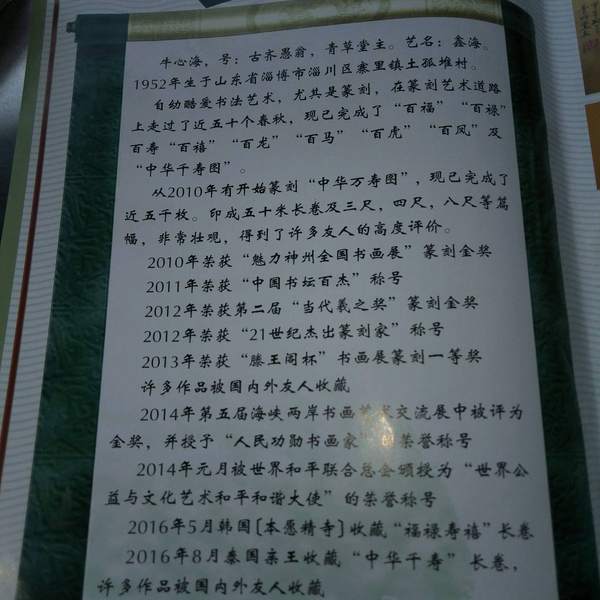 牛心海，号：古齐愚翁，青草堂主。艺名：鑫海。
1952年生于山东省淄博市淄川区寨里镇土孤堆村。
自幼酷爱书法艺术，尤其是篆刻，在篆刻艺术道路
上走过了近五十个春秋，现已完成了“百福”“百禄”
百寿“百禧”“百龙”“百马”“百虎”“百凤”及
“中华千寿图”。
从2010年有开始篆刻“中华万寿图”，现已完成了
近五千枚。印成五十米长卷及三尺，四尺，八尺等篇
幅，非常壮观，得到了许多友人的高度评价。
2010年荣获“魅力神州全国书画展”篆刻金奖
2011年荣获“中国书坛百杰”称号
2012年荣获第二届“当代羲之奖”篆刻金奖
2012年荣获“21世纪杰出篆刻家”称号
2013年荣获“滕王阁杯”书画展篆刻一等奖
许多作品被国内外友人收藏
2014年第五届海峡两岸书画艺术交流展中被评为
金奖，并授予“人民功勋书画家”的荣誉称号
2014年元月被世界和平联合总会颁授为“世界公
益与文化艺术和平和谐大使”的荣誉称号
2016年5月韩国〔本愿精寺〕收藏“福禄寿禧”长卷
2016年8月泰国亲王收藏“中华千寿”长卷，
许多作品被国内外友人收藏